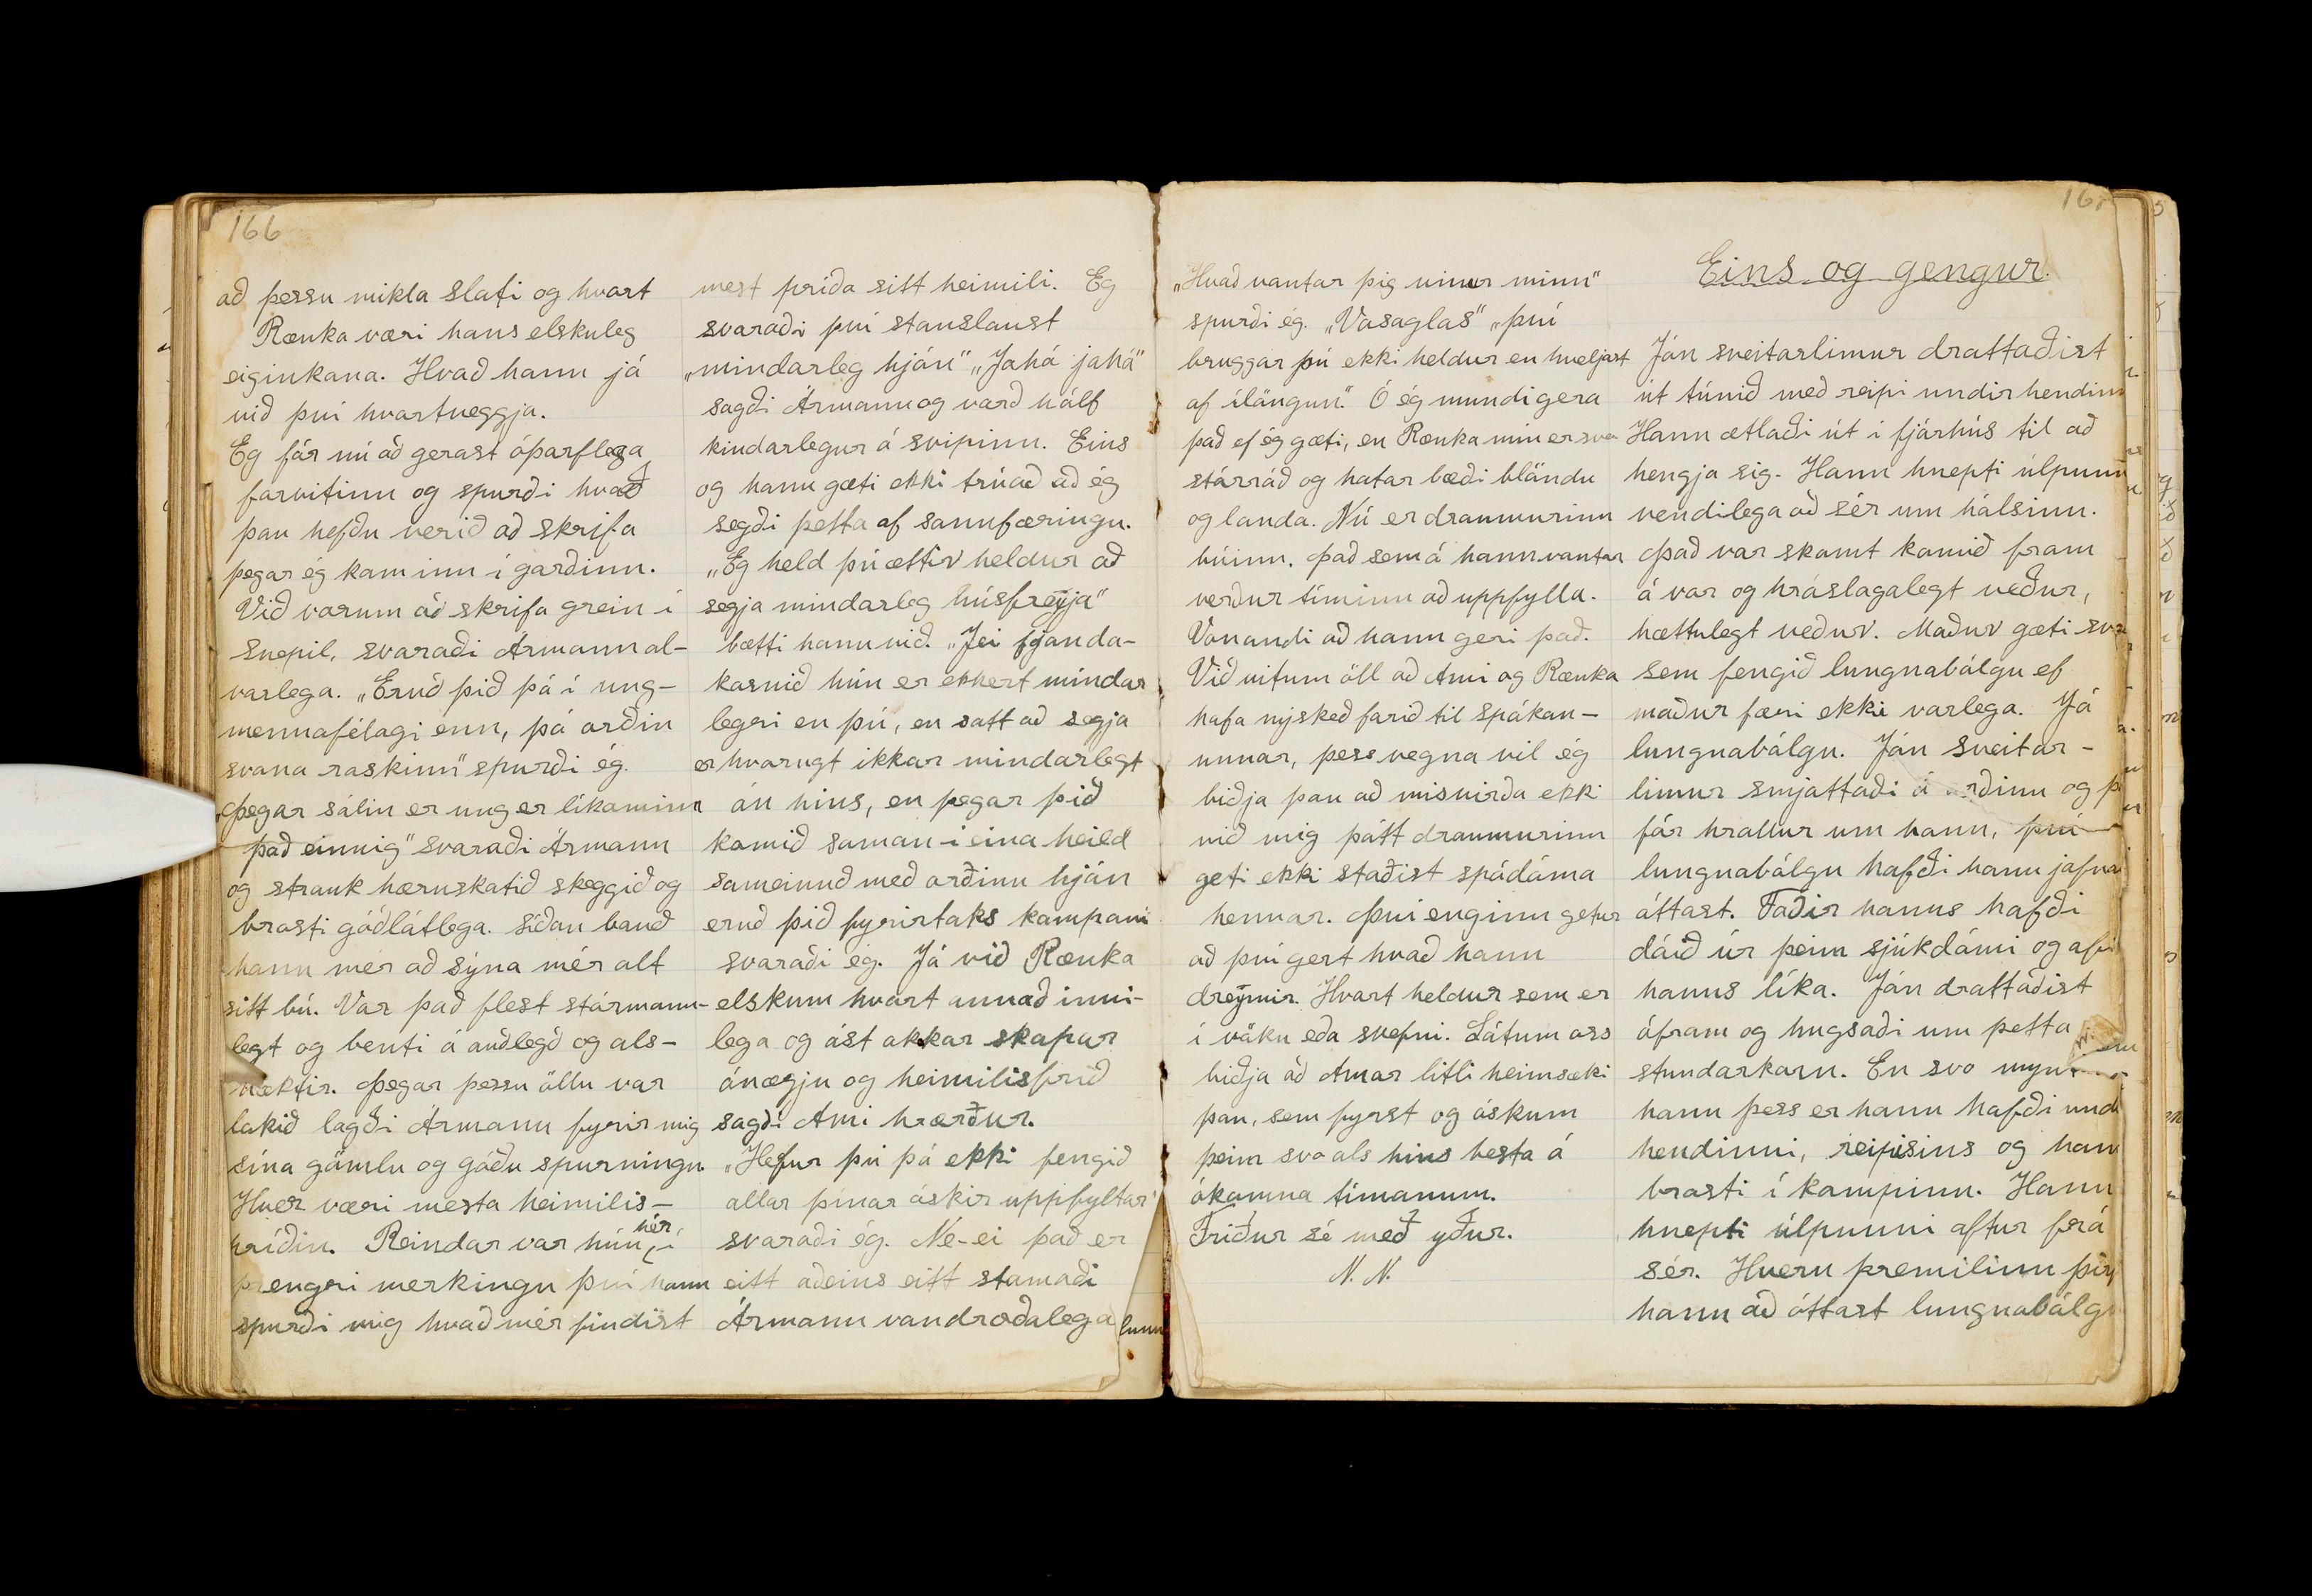 166
að þessu mikla sloti og hvort
Rænka væri hans elskuleg
eiginkona. Hvað hann já
við því hvortveggja.
Eg fór nú að gerast óþarflega
forvitinn og spurði hvað
þau hefðu verið að skrifa
þegar ég kom inn í garðinn.
Við vorum að skrifa grein í
Snepil, svaraði Ármann al-
varlega. „Eruð þið þá í ung-
mennafélagi enn, þá orðin
svona roskinn" spurði ég.
Þegar sálin er ung er líkaminn
það einnig" svaraði Ármann
og strauk hæruskotið skeggið og
brosti góðlátlega. Síðan bauð
hann mer að sýna mér alt
sitt bú. Var það flest stórmann-
legt og benti á auðlegð og als-
næktir. Þegar þessu öllu var
lokið lagði Ármann fyrir mig
sína gömlu og góðu spurningu
Hver væri mesta heimilis-
príðin. Reindar var hún hér í
þrengri merkingu því hann
spurði mig hvað mér findist
mest príða sitt heimili. Eg
svaraði því stanslaust
„mindarleg hjón" „Jahá jahá"
sagði Ármann og varð hálf
kindarlegur á svipinn. Eins
og hann gæti ekki trúað að ég
segði þetta af sannfæringu.
„Eg held þú ættir heldur að
segja mindarleg húsfreyja"
bætti hann við. „Jei fjanda-
kornið hún er ekkert mindar
legri en þú, en satt að segja
er hvorugt ikkar mindarlegt
án hins, en þegar þið
komið saman í eina heild
sameinuð með orðinu hjón
eruð þið fyrirtaks kompaní
svaraði ég. Já við Rænka
elskum hvort annað inni-
lega og ást okkar skapar
ánægju og heimilisfrið
sagði Ami hrærður.
„Hefur þú þá ekki fengið
allar þínar óskir uppfyltar"
svaraði ég. Ne-ei það er
eitt aðeins eitt stamaði
Ármann vandræðalega
„Hvað vantar þig vinur minn"
spurði ég. „Vasaglas" „því
bruggar þú ekki heldur en kveljast
af ílöngun". Ó ég mundi gera
það ef ég gæti, en Rænka mín er svo
stórráð og hatar bæði blöndu
og landa. Nú er draumurinn
búinn. Það sem á hann vantar
verður tíminn að uppfylla.
Vonandi að hann geri það.
Við vitum öll að Ami og Rænka
hafa nýskeð farið til spákon-
unnar, þess vegna vil ég
biðja þau að misvirða ekki
við mig þótt draumurinn
geti ekki staðist spádóma
hennar. Því enginn getur
að því gert hvað hann
dreymir. Hvort heldur sem er
í vöku eða svefni. Látum oss
biðja að Amor litli heimsæki
þau, sem fyrst og óskum
þeim svo als hins besta á
ókomna tímanum.
Friður sé með yður.
N. N.
Eins og gengur.
Jón sveitarlimur drattaðist
út túnið með reipi undir hendinni
Hann ætlaði út í fjárhús til að
hengja sig. Hann hnepti úlpunni
vendilega að sér um hálsinn.
Það var skamt komið fram
á vor og hráslagalegt veður,
hættulegt veður. Maður gæti svo
sem fengið lungnabólgu ef
maður færi ekki varlega. Já
lungnabólgu. Jón sveitar-
limur smjattaði á orðinu og þ
fór hrollur um hann, því
lungnabólgu hafði hann jafna
óttast. Faðir hanns hafði
dáið úr þeim sjúkdómi og afi
hanns líka. Jón drattaðist
áfram og hugsaði um þetta
stundarkorn. En svo
hann þess er hann hafði und
hendinni, reipisins og hann
brosti í kampinn. Hann
hnepti úlpunni aftur frá
sér. Hvern þremilinn þir
hann að óttast lungnabólgu